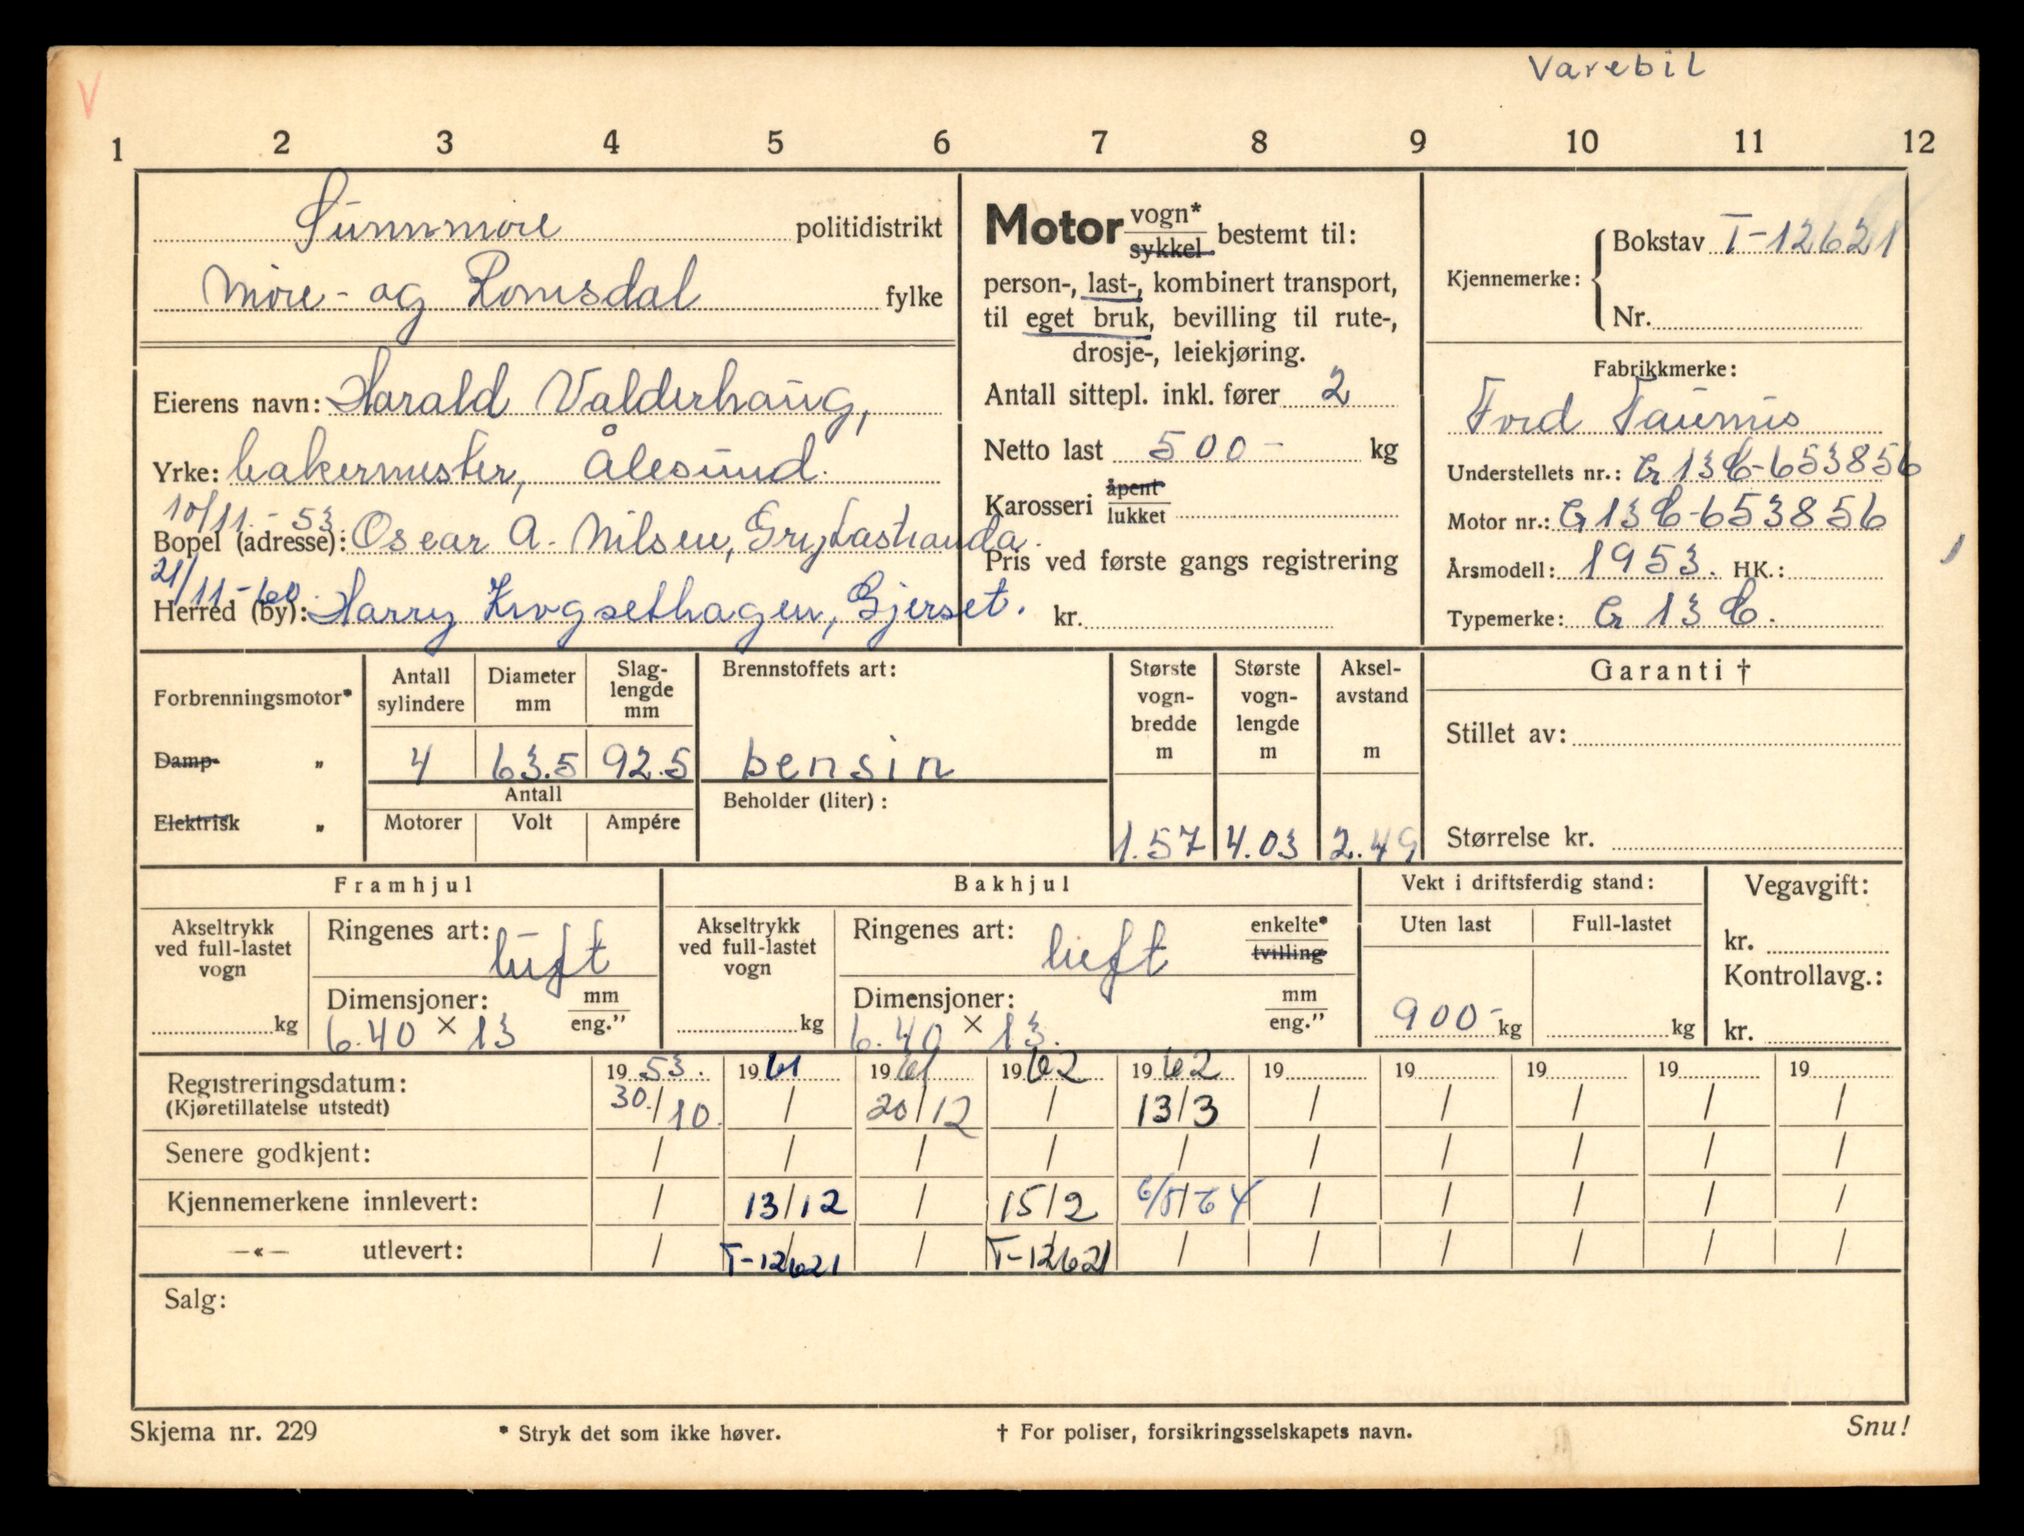 Varebil
V
1 2 3 4 5 6 7 8 9 10 11 12
Sunnmøre politidistrikt
Møre- og Romsdal fylke
Eierens navn: Harald Valderhaug,
Yrke: bakermester, Ålesund.
10/11.-53
Bopel (adresse): Oscar A. Nilsen, Grytastranda.
21/11-60.
Herred (by): Harry Krogsethagen, Gjerset.
Motor vogn* sykkel bestemt til:
person-, last-, kombinert transport,
til eget bruk, bevilling til rute-,
drosje-, leiekjøring.
Antall sittepl. inkl. fører 2
Netto last 500- kg
Karosseri åpent lukket
Pris ved første gangs registrering
kr.
Kjennemerke: Bokstav T-12621
Nr.
Fabrikkmerke:
Ford Taunus
Understellets nr.: G13C-653856
Motor nr.: G13C-653856
Årsmodell: 1953. HK.:
Typemerke: G13C.
Forbrenningsmotor*
Damp- „
Elektrisk „
Antall sylindere 4
Diameter mm 63.5
Slag-lengde mm 92.5
Antall
Motorer Volt Ampére
Brennstoffets art:
bensin
Beholder (liter):
Største vogn-bredde m 1.57
Største vogn-lengde m 4.03
Aksel-avstand m 2.49
Garanti †
Stillet av:
Størrelse kr.
Framhjul
Akseltrykk ved full-lastet vogn
kg
Ringenes art: luft
Dimensjoner: mm eng."
6.40 × 13
Bakhjul
Akseltrykk ved full-lastet vogn
kg
Ringenes art: luft enkelte* tvilling
Dimensjoner: mm eng."
6.40 × 13.
Vekt i driftsferdig stand:
Uten last Full-lastet
900- kg kg
Vegavgift:
kr.
Kontrollavg.:
kr.
Registreringsdatum: 1953. 1961 1961 1962 1962 19 19 19 19 19
(Kjøretillatelse utstedt) 30./10. / 20/12 / 13/3 / / / / /
Senere godkjent: / / / / / / / / / /
Kjennemerkene innlevert: / 13/12 / 15/2 6/8/-64 / / / / /
—«— utlevert: / T-12621 / T-12621 / / / / / /
Salg:
Skjema nr. 229 * Stryk det som ikke høver. † For poliser, forsikringsselskapets navn. Snu!